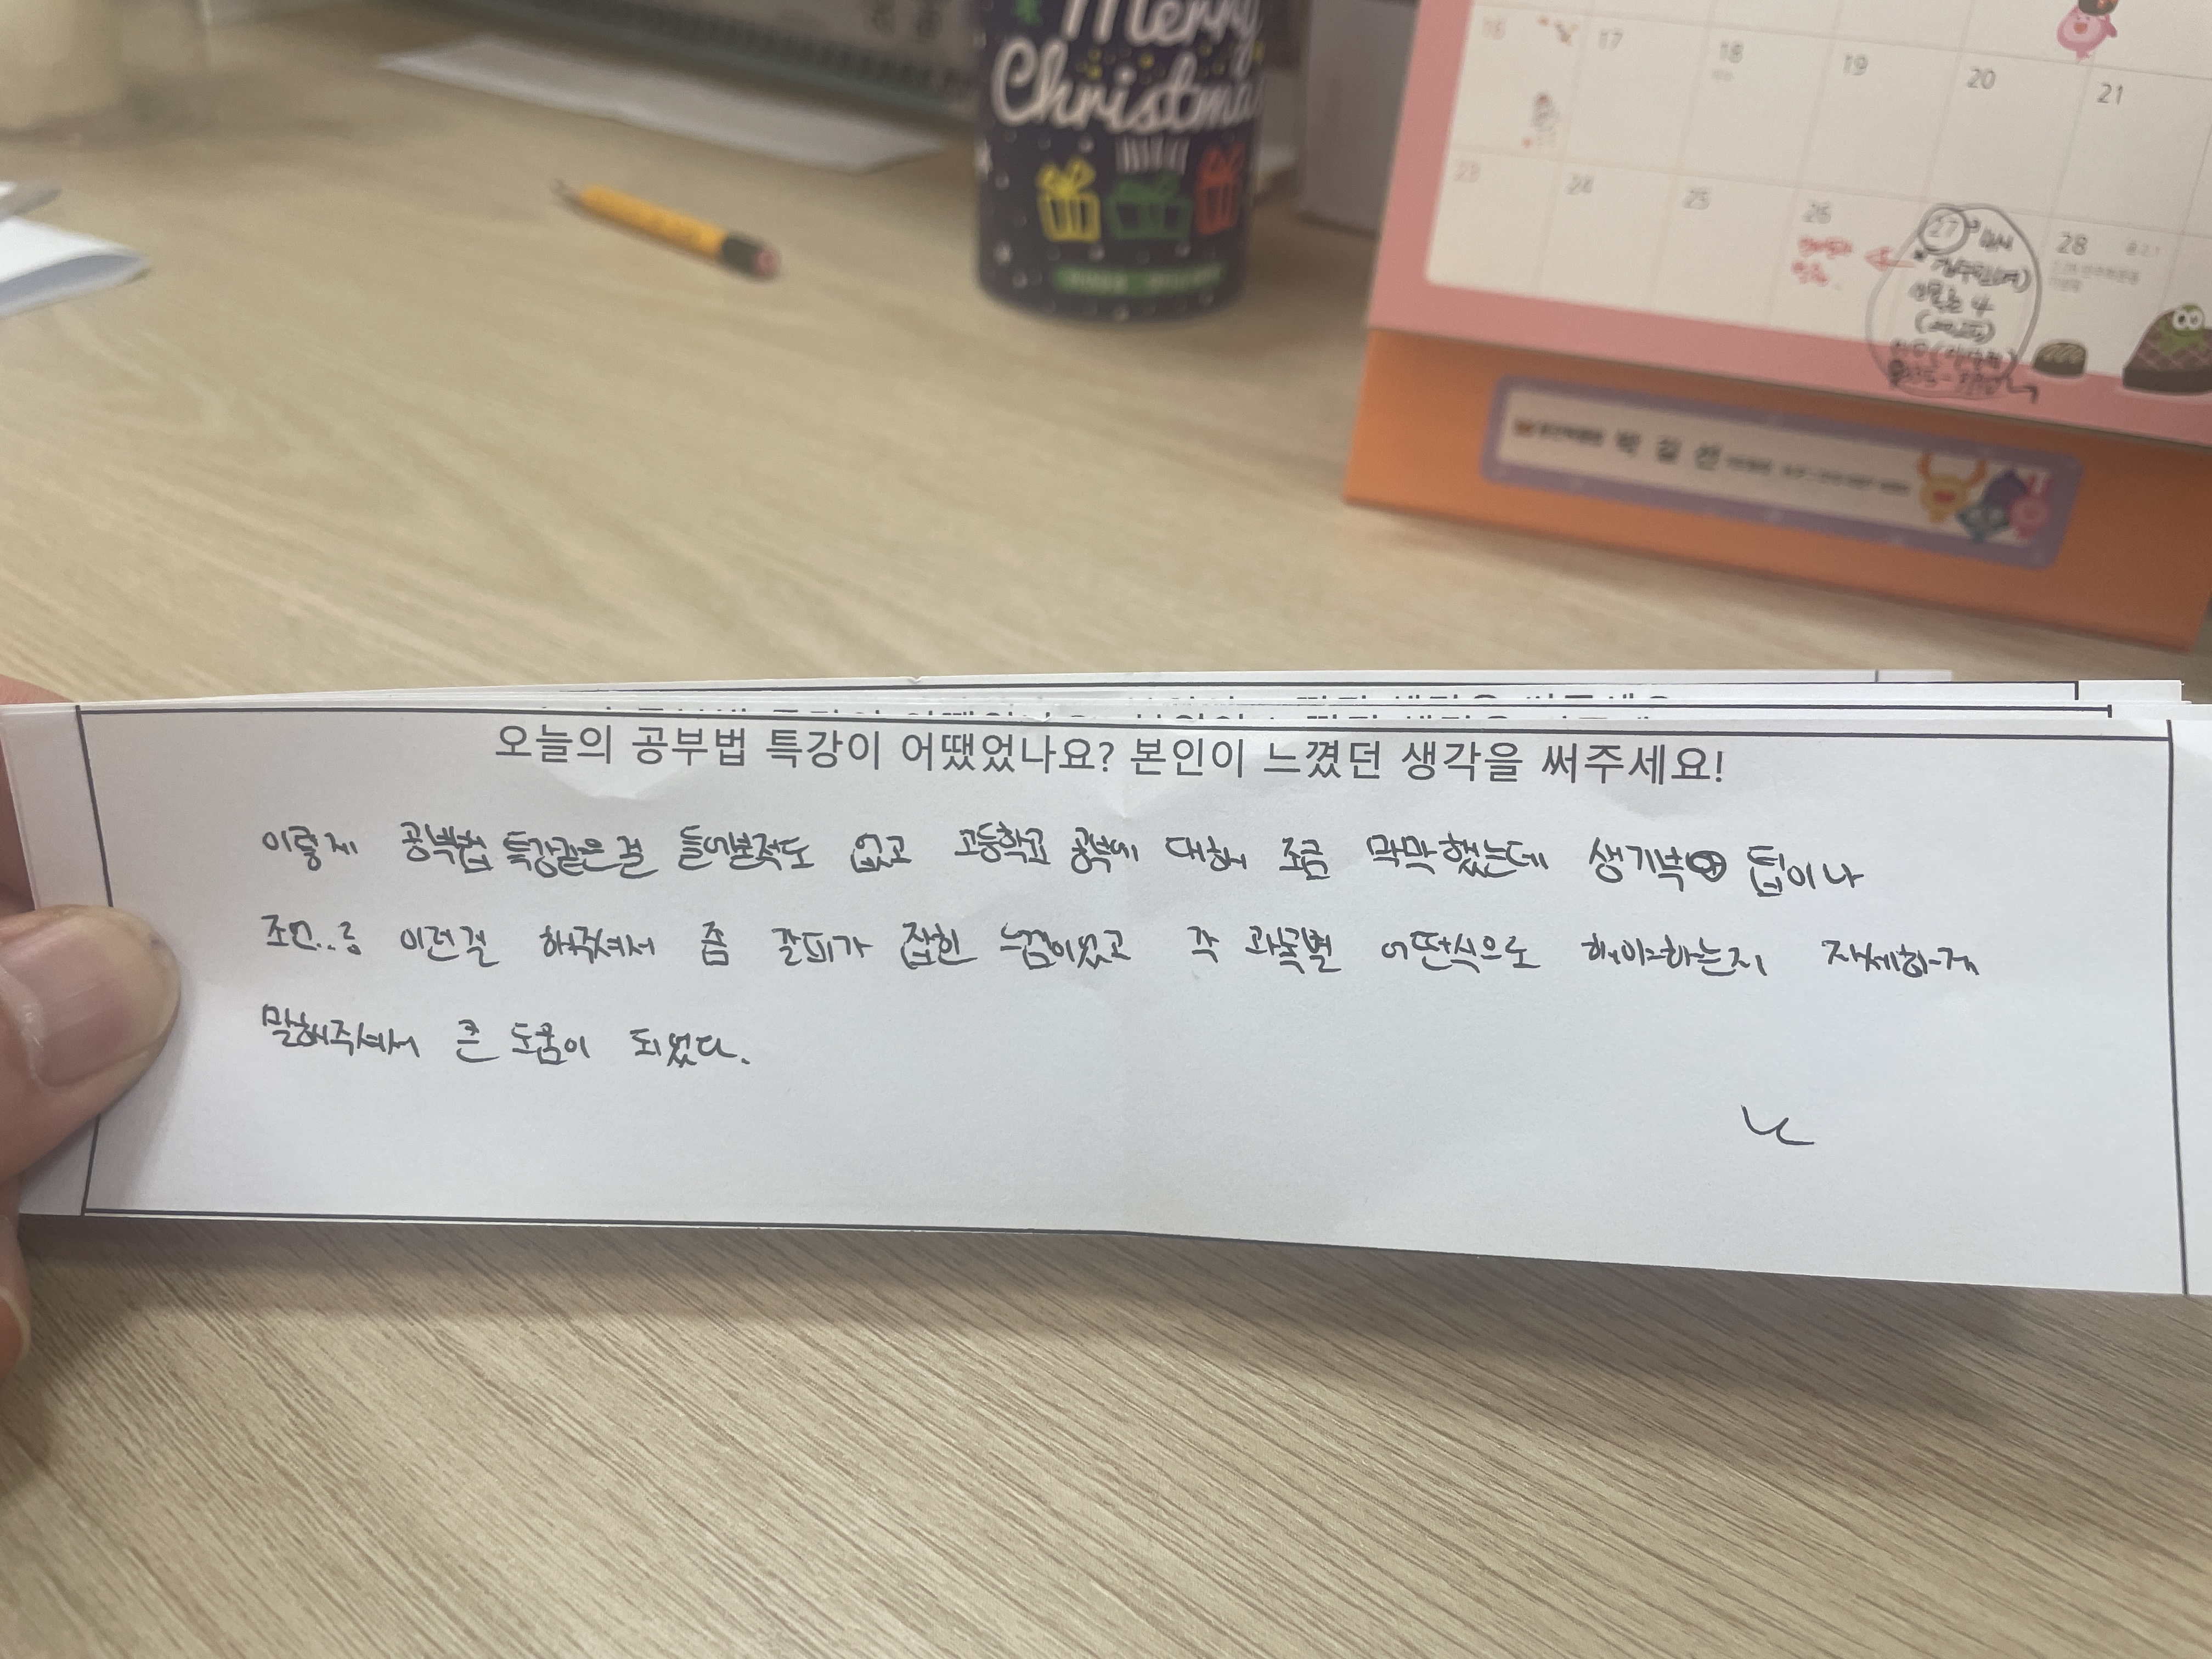 Merry
Christma
16 17 18 19 20 21
23 24 25 26 27 28
오늘의 공부법 특강이 어땠었나요? 본인이 느꼈던 생각을 써주세요!
이렇게 공부법 특강같은걸 들어본적도 없고 고등학교 공부에 대해 조금 막막했는데 생기부 팁이나
조언..? 이런걸 해주셔서 좀 갈피가 잡힌 느낌이었고 각 과목별 어떤식으로 해야하는지 자세하게
말해주셔서 큰 도움이 되었다.